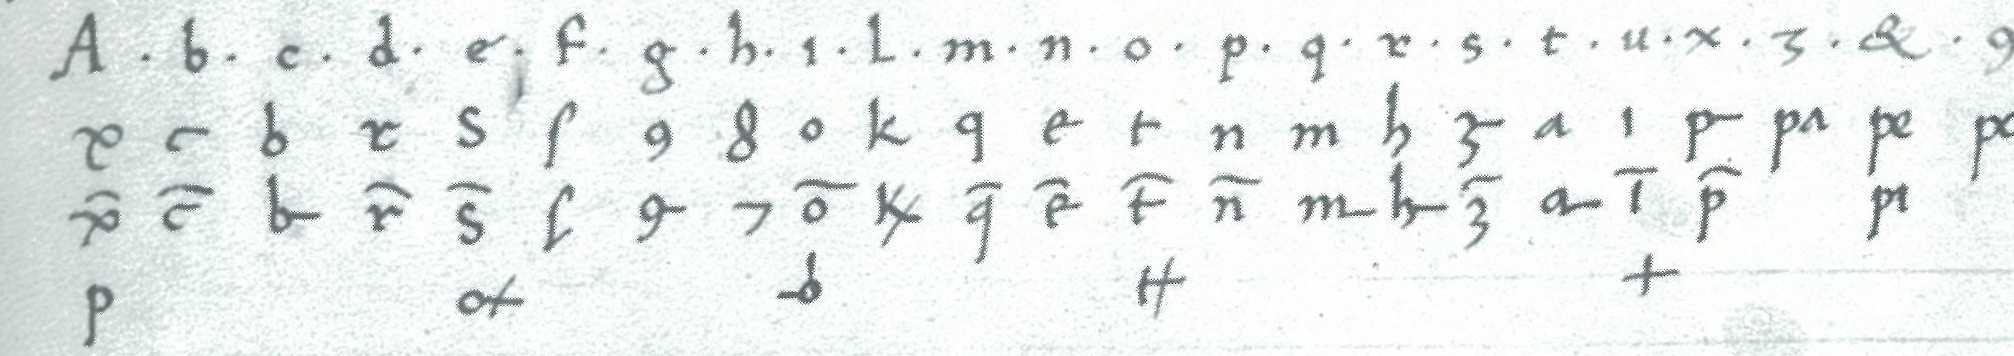 A . b . c . d . e . f . g . h . ı . L . m . n . o . p . q . r . s . t . u . x . ʒ . & . 9
c b r S ſ 9 8 o k q e t n m h ʒ a ı p pa pe
c̄ b r̄ s̄ ſ 9 7 ō k q̄ ē t̄ n̄ m h ʒ̄ a ī p̄ pı
p o b +